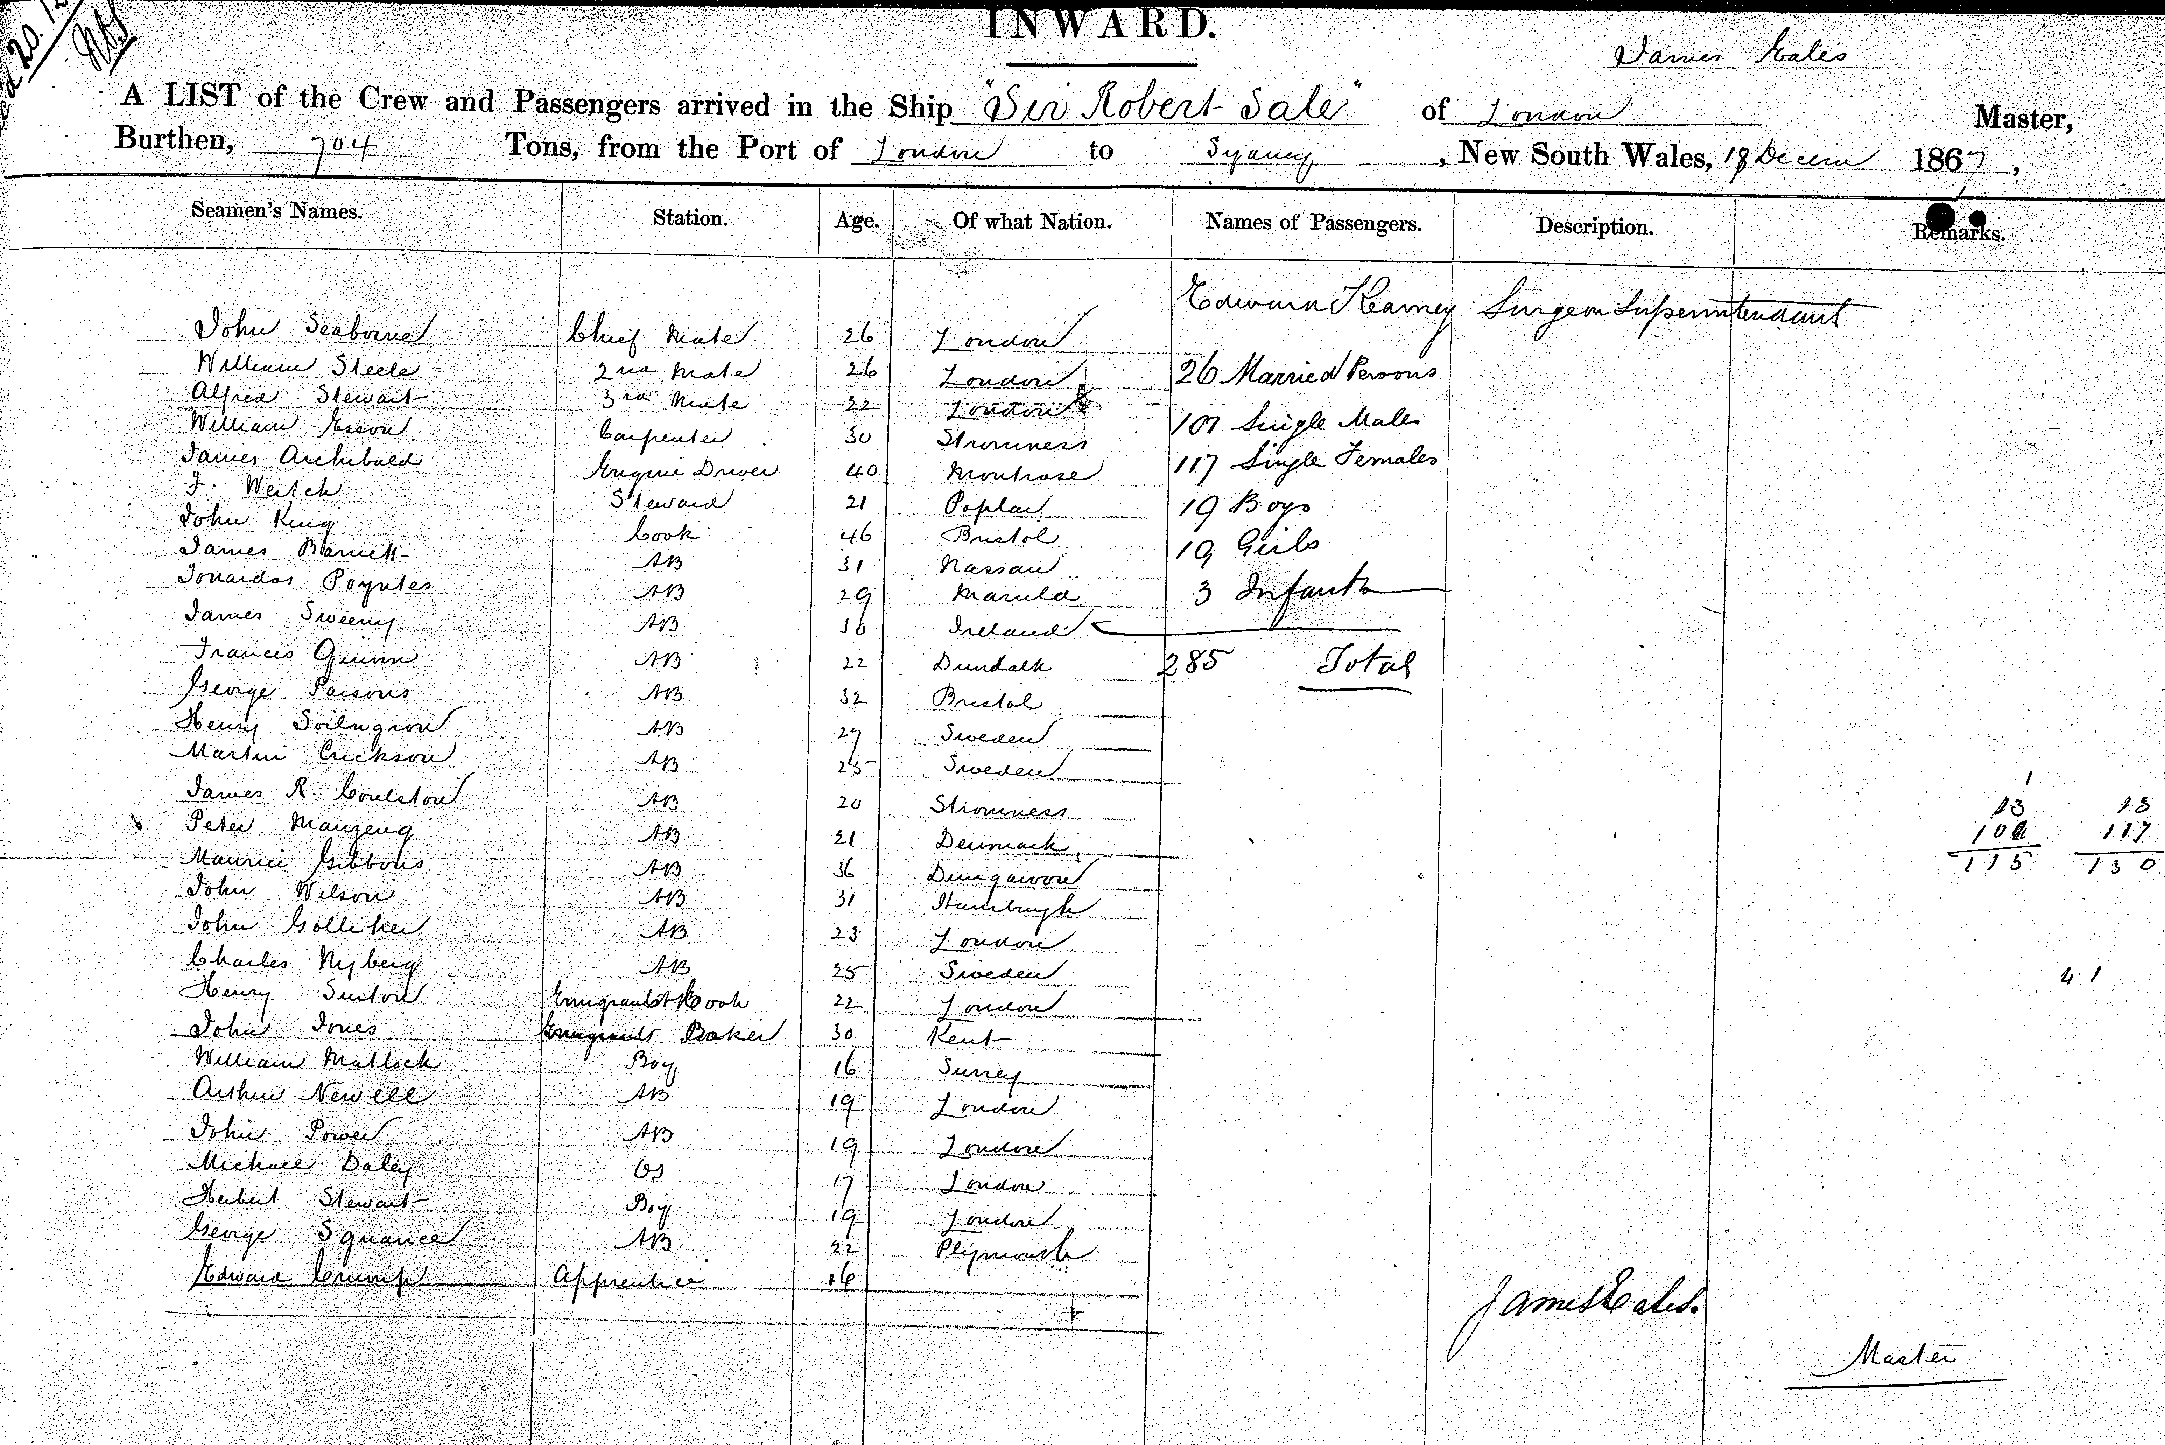 INWARD.
James Eales
A LIST of the Crew and Passengers arrived in the Ship "Sir Robert Sale" of London Master,
Burthen, 704 Tons, from the Port of London to Sydney, New South Wales, 18 Decem 1867,
Seamen's Names. Station. Age. Of what Nation. Names of Passengers. Description. Remarks.
Edward Kearney Surgeon Superintendant
John Seaborne Chief Mate 26 London
William Steele 2nd Mate 26 London 26 Married Persons
Alfred Stewart 3rd Mate 22 London
William Carpenter 30 Stromness 101 Single Males
James Archibald Engine Driver 40 Montrose 117 Single Females
J. Weitch Steward 21 Poplar 19 Boys
John King Cook 46 Bristol 19 Girls
James Barrett AB 31 Nassau
Poynter AB 29 Manila 3 Infants
James Sweeny AB 36 Ireland
Francis Quinn AB 22 Dundalk 285 Total
George Parsons AB 32 Bristol
Henry AB 27 Sweden
Martin Erickson AB 25 Sweden
James R. Coulston AB 20 Stromness
Peter AB 21 Denmark
Maurice Gibbons AB 36 Dungarvon
John Wilson AB 31 Hamburgh
John Golliker AB 23 London
Charles Nyberg AB 25 Sweden
Henry Suiton Emigrants Cook 22 London
John Jones Emigrants Baker 30 Kent
William Matlock Boy 16 Surrey
Arthur Newell AB 19 London
John Power AB 19 London
Michael Daley OS 17 London
Herbert Stewart Boy 19 London
George Squance AB 22 Plymouth
Edward Crump Apprentice 16
1
13 13
102 117
115 130
41
James Eales.
Master